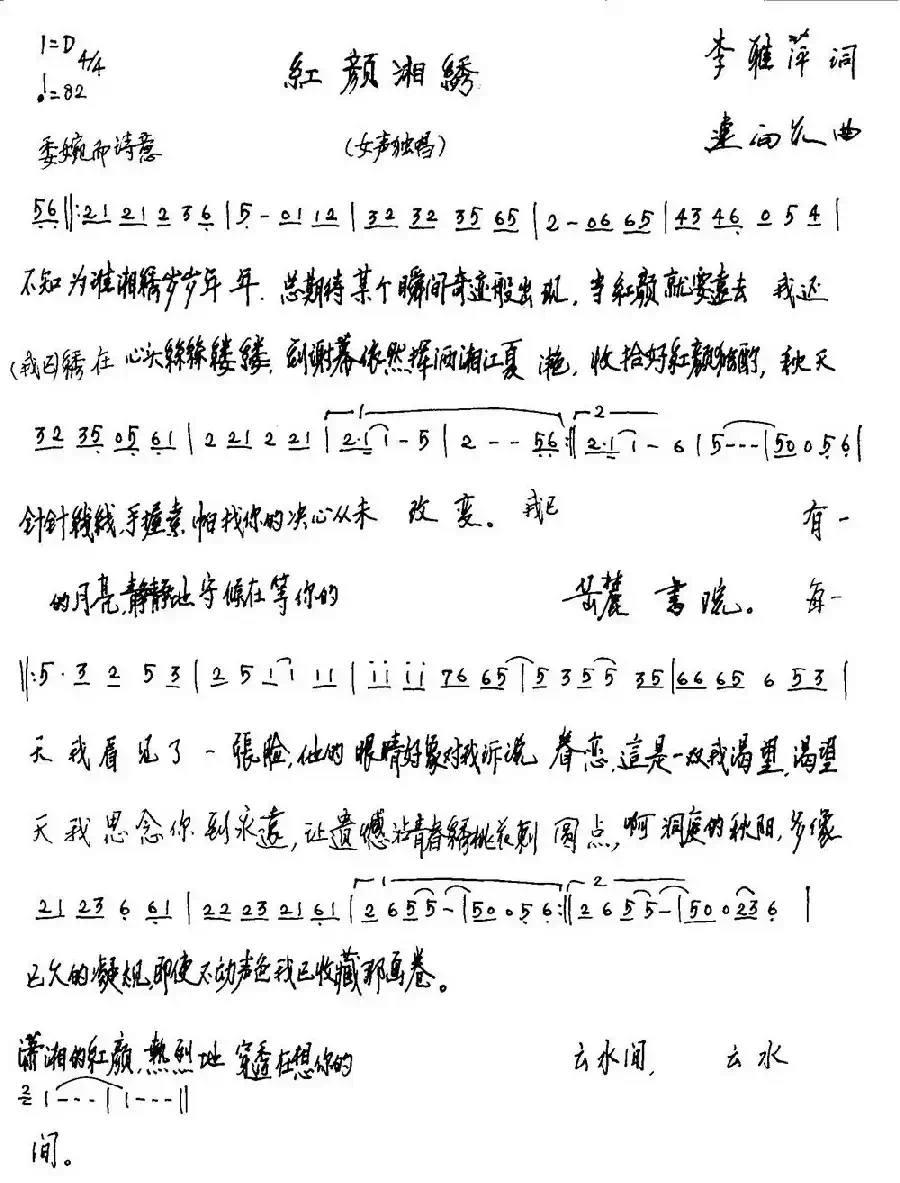 1=D 4/4
♩=82
紅顏湘綉
李雅萍 词
曲
委婉而诗意
(女声独唱)
56‖:21 212 36|5-0112|32 32 35 65|2-06 65|43 46 0 5 4|
不知为谁湘綉岁岁年年.总期待某个瞬间奇迹般出现,当红顏就要遠去 我还
(我已)綉在心头絲絲缕缕.到谢幕依然挥洒湘江夏滟,收拾好红颜,秋天
32 35 05 61|2 21 2 21|1 2·1 1-5|2--56:‖2 2·1 1-6|5---|50056|
针针线线,手握素帕找你的决心从未 改变。我已 有一
的月亮,静静地守候在等你的 岳麓書院。每一
‖:5·3 2 5 3|2 5 1 1 11|ii ii 76 65|5 3 5 5 35|66 65 6 53|
天我看见了一張脸,他的眼睛好象对我诉说 眷恋,這是一双我渴望,渴望
天我思念你到永遠,让遺憾沾青春綉桃花刺 圆点,啊洞庭的秋阳,多像
21 23 6 61|22 23 21 61|1 2 6 5 5-|50056:‖2 2 6 5 5-|500236|
已久的凝视,即使不动声色我已收藏那画卷。
潇湘的红颜,熱烈地穿透在想你的 云水间, 云水
2 1---|1---‖
间。